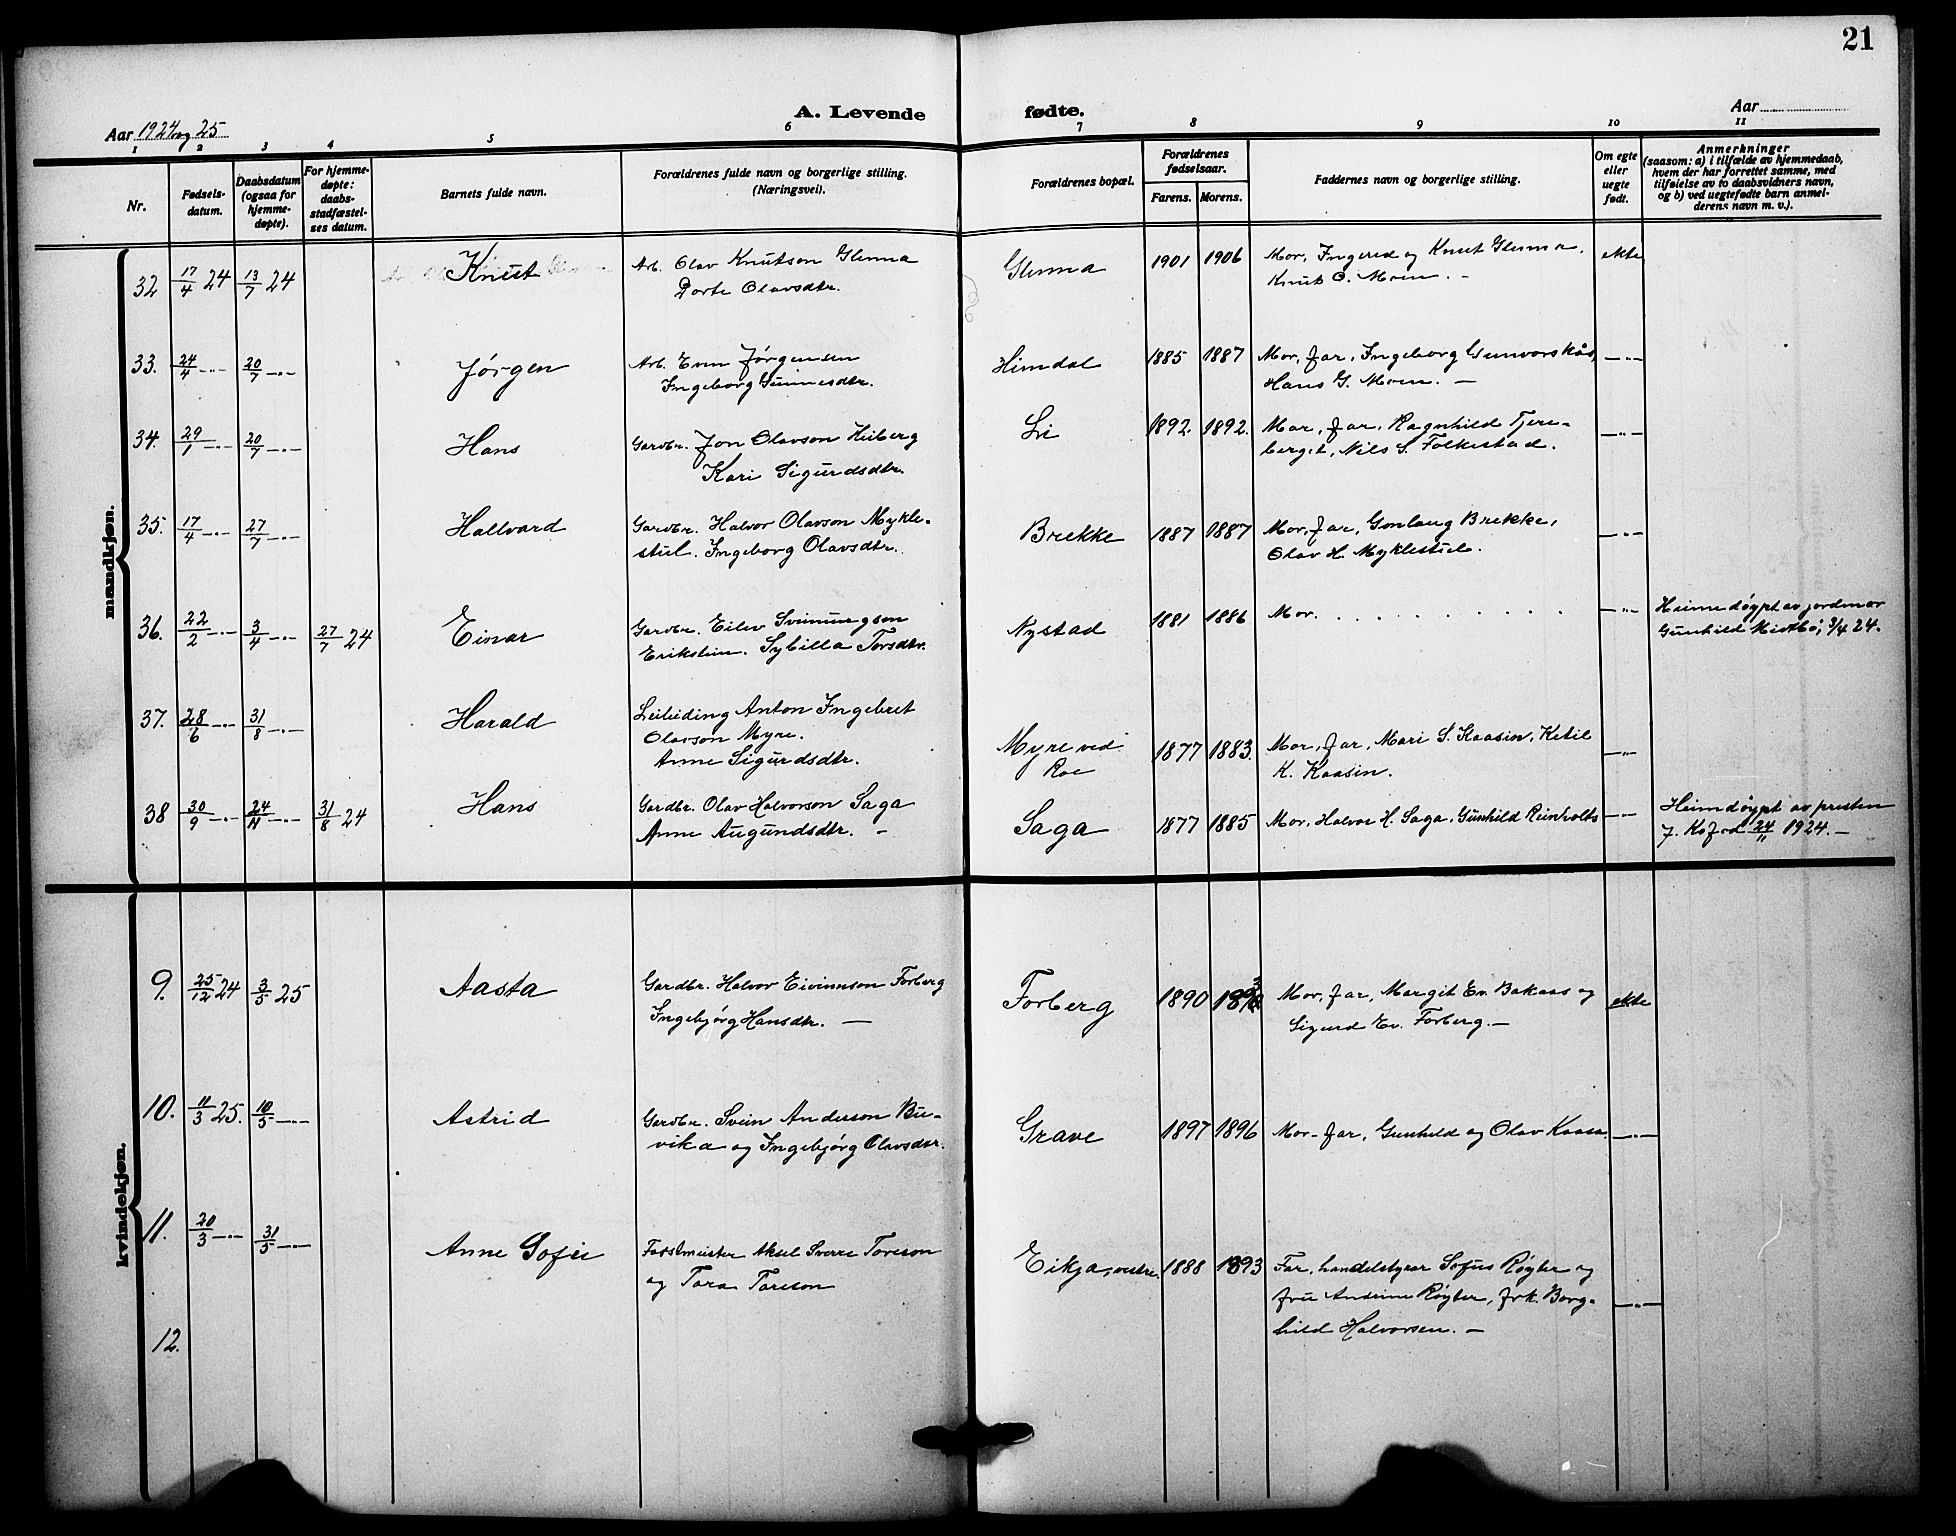 21
A. Levende fødte.
Aar 1924 og 25
Aar
1 2 3 4 5 6 7 8 9 10 11
Nr.
Fødsels-
datum.
Daabsdatum
(ogsaa for
hjemme-
døpte).
For hjemme-
døpte:
daabs-
stadfæstel-
ses datum.
Barnets fulde navn.
Forældrenes fulde navn og borgerlige stilling.
(Næringsvei).
Forældrenes bopæl.
Forældrenes
fødselsaar.
Farens. Morens.
Faddernes navn og borgerlige stilling.
Om egte
eller
uegte
født.
Anmerkninger
(saasom: a) i tilfælde av hjemmedaab,
hvem der har forrettet samme, med
tilføielse av to daabsvidners navn,
og b) ved uegtefødte barn anmel-
derens navn m. v.).
mandkjøn.
32 17/4 24 13/7 24 Knut Arb. Olav Knutson Glenna Glenna 1901 1906 Mor, Ingered og Knut Glenna, ekte
Dorte Olavsdtr. Knut O. Moen. -
33. 24/4 -"- 20/7 -"- Jørgen Arb. Even Jørgensen Himdal 1885 1887 Mor, far, Ingeborg Gunvorskås, -"-
Ingeborg Gunnesdtr. Hans G. Moen. -
34. 29/1 -"- 20/7 -"- Hans Gardbr. Jon Olavson Heiberg Li 1892. 1892. Mor, far, Ragnhild Tjere- -"-
Kari Sigurdsdtr. berget, Nils S. Folkestad.
35. 17/4 -"- 27/7 -"- Hallvard Gardbr. Halvor Olavson Mykle- Brekke 1887 1887 Mor, far, Gonlaug Brekke, -"-
stul. Ingeborg Olavsdtr. Olav H. Myklestul.
36. 22/2 -"- 3/4 -"- 27/7 24 Einar Gardbr. Eilev Svenungson Nystad 1881 1886 Mor. . . . . . . . . . . . -"- Heimedøypt av jordmor
Erikstein. Sybilla Torsdtr. Gunhild Midtbø, 3/4 24.
37. 28/6 -"- 31/8 -"- Harald Leilending Anton Ingebret
Olavson Myre. Myre ved 1877 1883. Mor, far, Mari S. Kaasin, Ketil -"-
Anne Sigurdsdtr. Roe K. Kaasin.
38 30/9 -"- 24/11 -"- 31/8 24 Hans Gardbr. Olav Halvorson Saga Saga 1877 1885 Mor, Halvor H. Saga, Gunhild Reinholts -"- Heimdøypt av presten
Anne Augundsdtr. - J. Kofod 24/11 1924. -
kvindekjøn.
9. 25/12 24 3/5 25 Aasta Gardbr. Halvor Eivinnson Forberg Forberg 1890 189 Mor, far, Margit Ev. Bakaas og ekte
Ingebjørg Hansdtr. - Sigurd Ev. Forberg. -
10. 11/3 25. 10/5 -"- Astrid Gardbr. Svein Anderson Bu- Grave 1897 1896 Mor - far, Gunhild og Olav Kaasa. -"-
vika og Ingebjørg Olavsdtr.
11. 20/3 -"- 31/5 -"- Anne Sofie Forstmeister Aksel Sverre Toreson Eikja, vestre. 1888 1893 Far, handelstyrar Sofus Røyter og
og Tora Toreson fru Andrine Røyter, frk. Borg- -"-
hild Halvorsen. -
12.